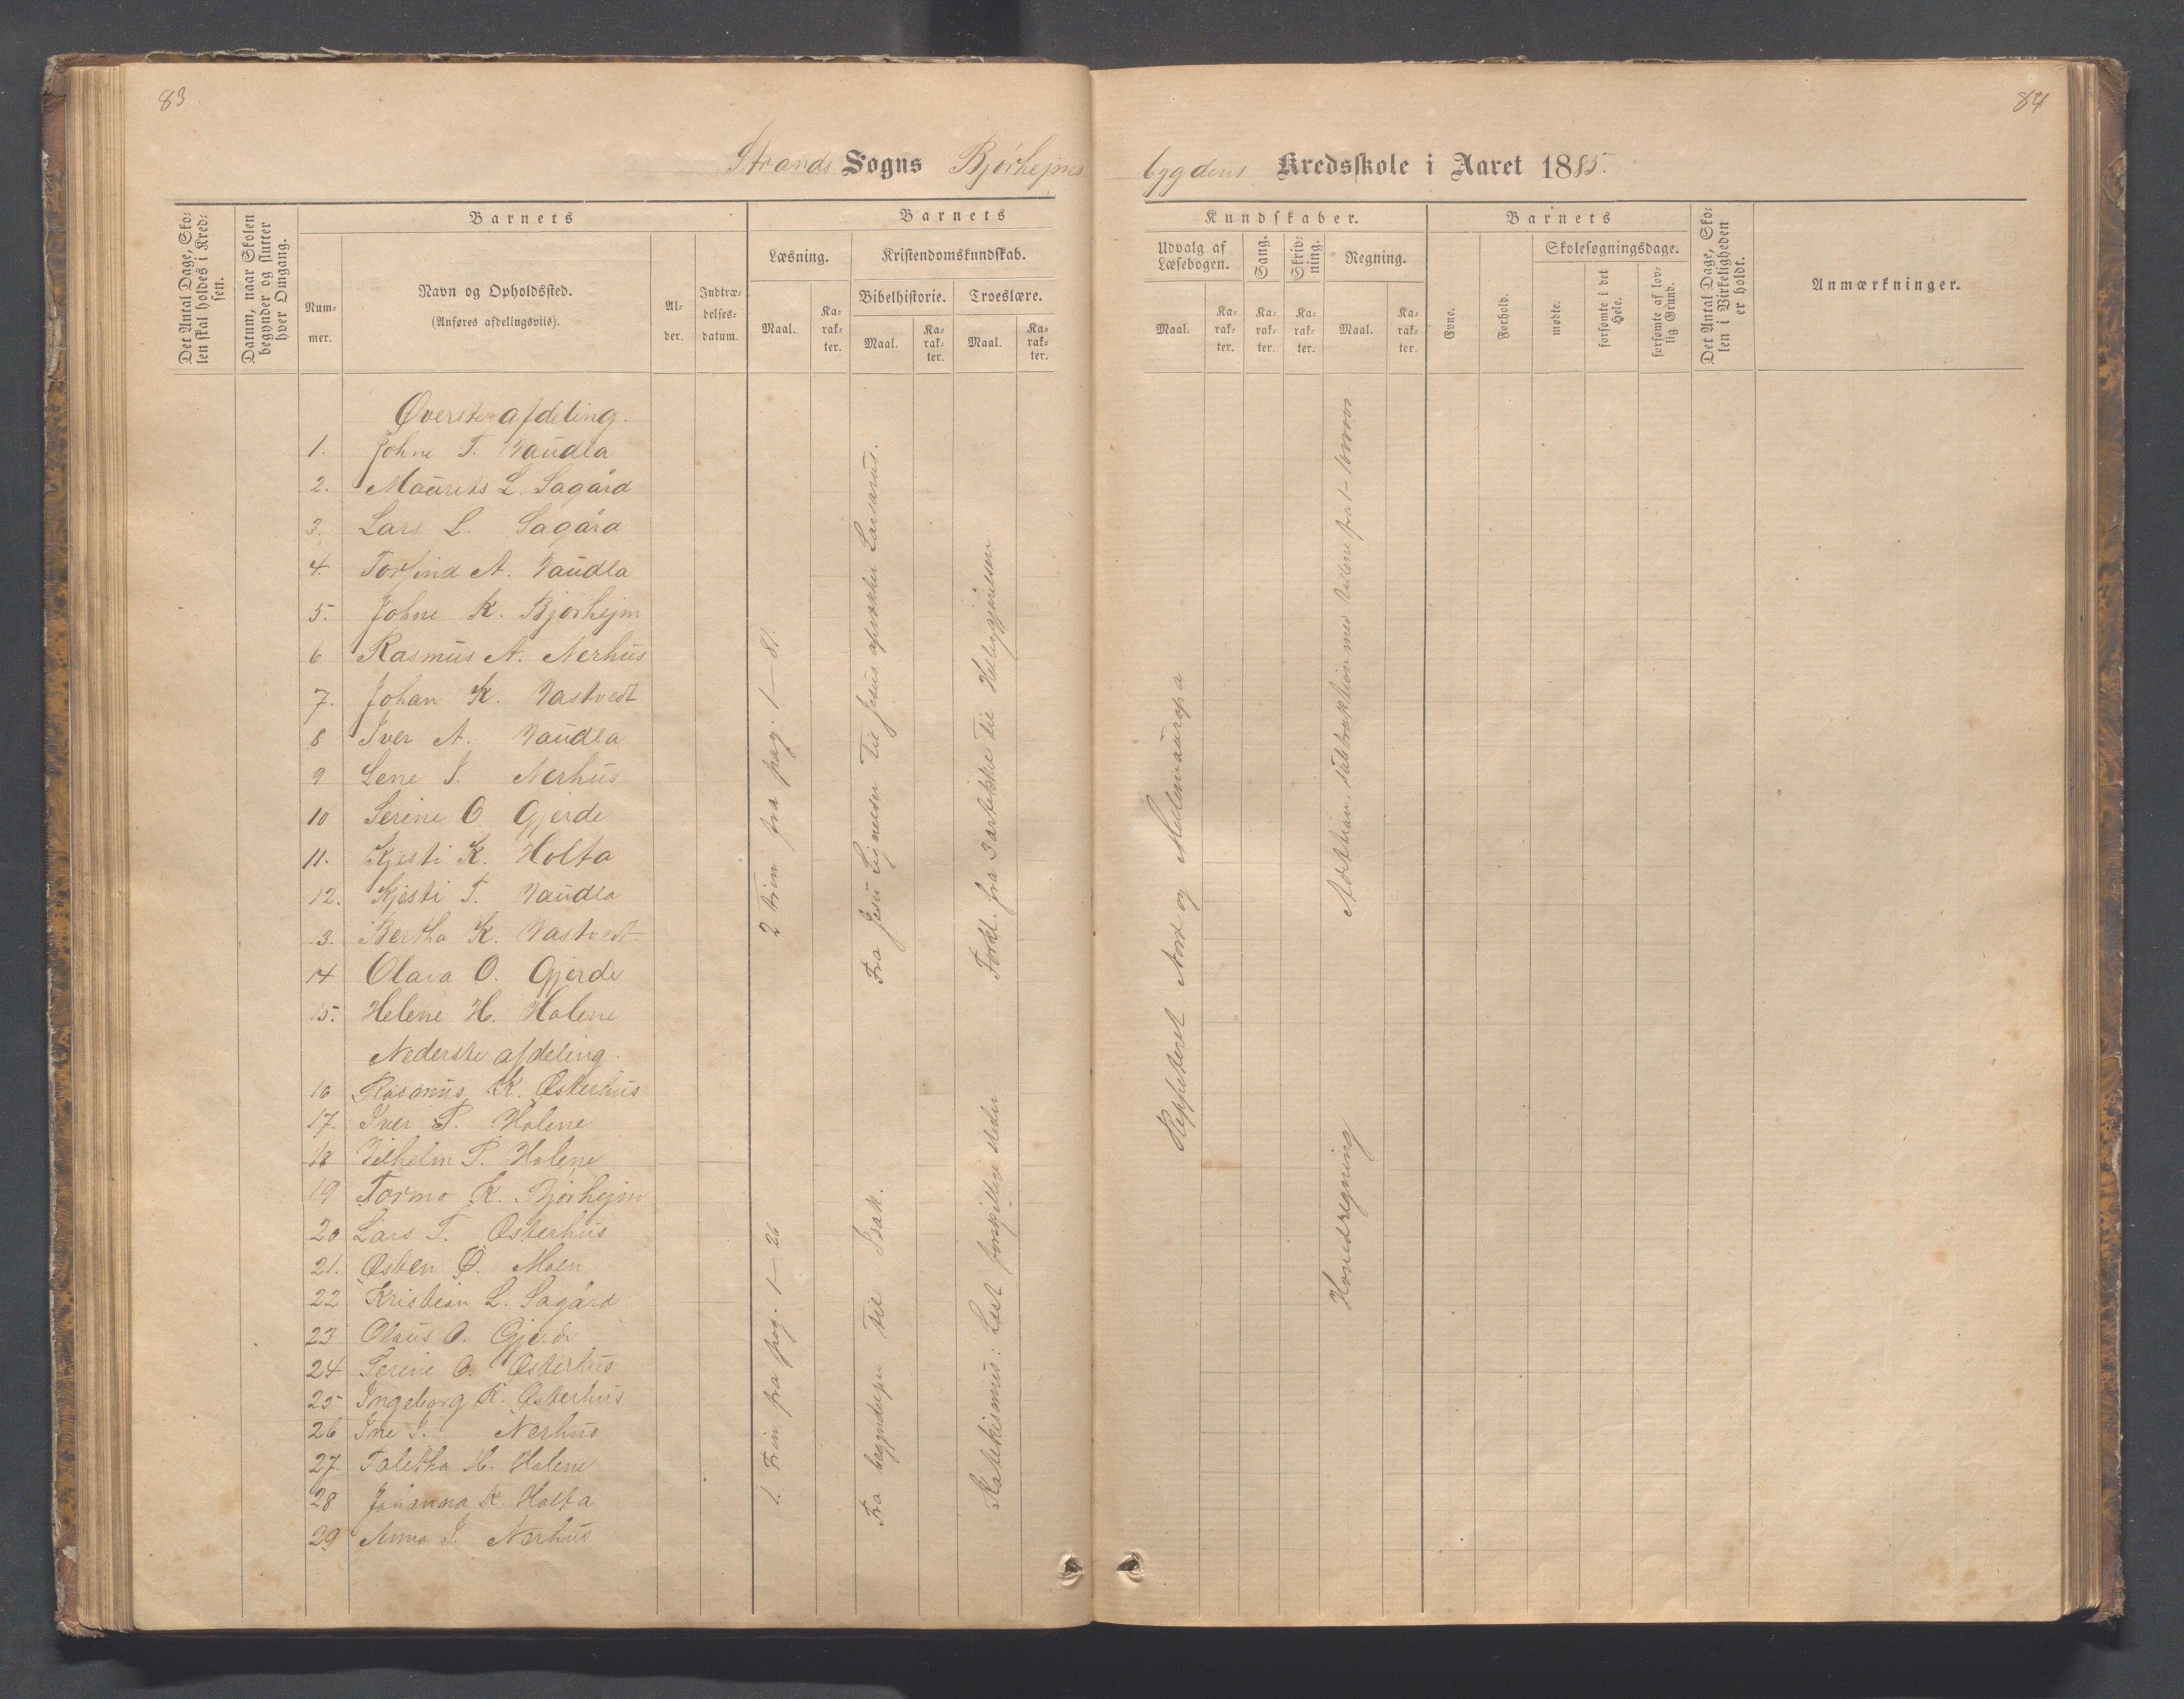 83
84
Strands Sogns Bjørhejms
bygdens Kredsskole i Aaret 1885.
Det Antal Dage, Sko-
len skal holdes i Kred-
sen.
Datum, naar Skolen
begynder og slutter
hver Omgang.
Barnets
Num-
mer.
Navn og Opholdssted.
(Anføres afdelingsviis).
Al-
der.
Indtræ-
delses-
datum.
Barnets
Læsning.
Maal.
Ka-
rak-
ter.
Kristendomskundskab.
Bibelhistorie.
Maal.
Ka-
rak-
ter.
Troeslære.
Maal.
Ka-
rak-
ter.
Kundskaber.
Udvalg af
Læsebogen.
Maal.
Ka-
rak-
ter.
Sang.
Ka-
rak-
ter.
Skriv-
ning.
Ka-
rak-
ter.
Regning.
Maal.
Ka-
rak-
ter.
Barnets
Evne.
Forhold.
Skolesøgningsdage.
mødte.
forsømte i det
Hele.
forsømte af lov-
lig Grund.
Det Antal Dage, Sko-
len i Virkeligheden
er holdt.
Anmærkninger.
Øverste afdeling.
1. Johne T. Vaudla
2. Maurits L. Sagård
3. Lars L. Sagård
4. Torfind A. Vaudla
5. Johne K. Bjørhejm
6 Rasmus A. Nerhus
7. Johan K. Vastvedt
8 Iver A. Vaudla
9 Lene J. Nerhus
10 Serine O. Gjerde
11. Kjesti K. Holta
12. Kjesti T. Vaudla
13. Bertha K. Vastvedt
14 Olava O. Gjerde
15. Helene H. Holene
Nederste afdeling.
16 Rasmus K. Østerhus
17. Iver P. Holene
18 Vilhelm P. Holene
19 Tormo K. Bjørhejm
20 Lars T. Østerhus
21. Østen Ø. Moen
22 Kristian L. Sagård
23 Olaus O. Gjerde
24 Serine O. Østerhus
25 Ingeborg K. Østerhus
26 Ine J. Nerhus
27. Taletha H. Holene
28 Johanna K. Holta
29 Anna J. Nerhus
2 trin fra pag. 1 – 81.
1. Trin fra pag. 1 – 26
Fra Jesu Lignelser til Jesus opvækker Lasarus.
Fra begyndelsen til Isak.
Forkl. fra 3 artikke til Helliggjørelsen
Katekismus: Lest forskjellige steder
Reppeteret Nord og Mellemaüropa
Addition, subtraktion med tallene fra 1 – 1000000
Hovedregning